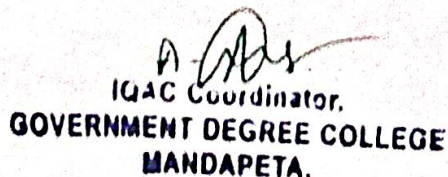 IQAC Coordinator,
GOVERNMENT DEGREE COLLEGE
MANDAPETA.